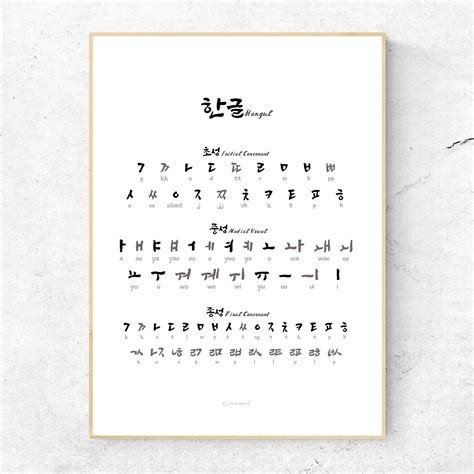 한글 Hangul
초성 Initial Consonant
ㄱ ㄲ ㄴ ㄷ ㄸ ㄹ ㅁ ㅂ ㅃ
g kk n d tt r m b pp
ㅅ ㅆ ㅇ ㅈ ㅉ ㅊ ㅋ ㅌ ㅍ ㅎ
s ss silent j jj ch k t p h
중성 Medial Vowel
ㅏ ㅐ ㅑ ㅒ ㅓ ㅔ ㅕ ㅖ ㅗ ㅘ ㅙ ㅚ
a ae ya yae eo e yeo ye o wa wae oe
ㅛ ㅜ ㅝ ㅞ ㅟ ㅠ ㅡ ㅢ ㅣ
yo u wo we wi yu eu ui i
종성 Final Consonant
ㄱ ㄲ ㄴ ㄷ ㄹ ㅁ ㅂ ㅅ ㅆ ㅇ ㅈ ㅊ ㅋ ㅌ ㅍ ㅎ
ㄳ ㄵ ㄶ ㄺ ㄻ ㄼ ㄽ ㄾ ㄿ ㅀ ㅄ